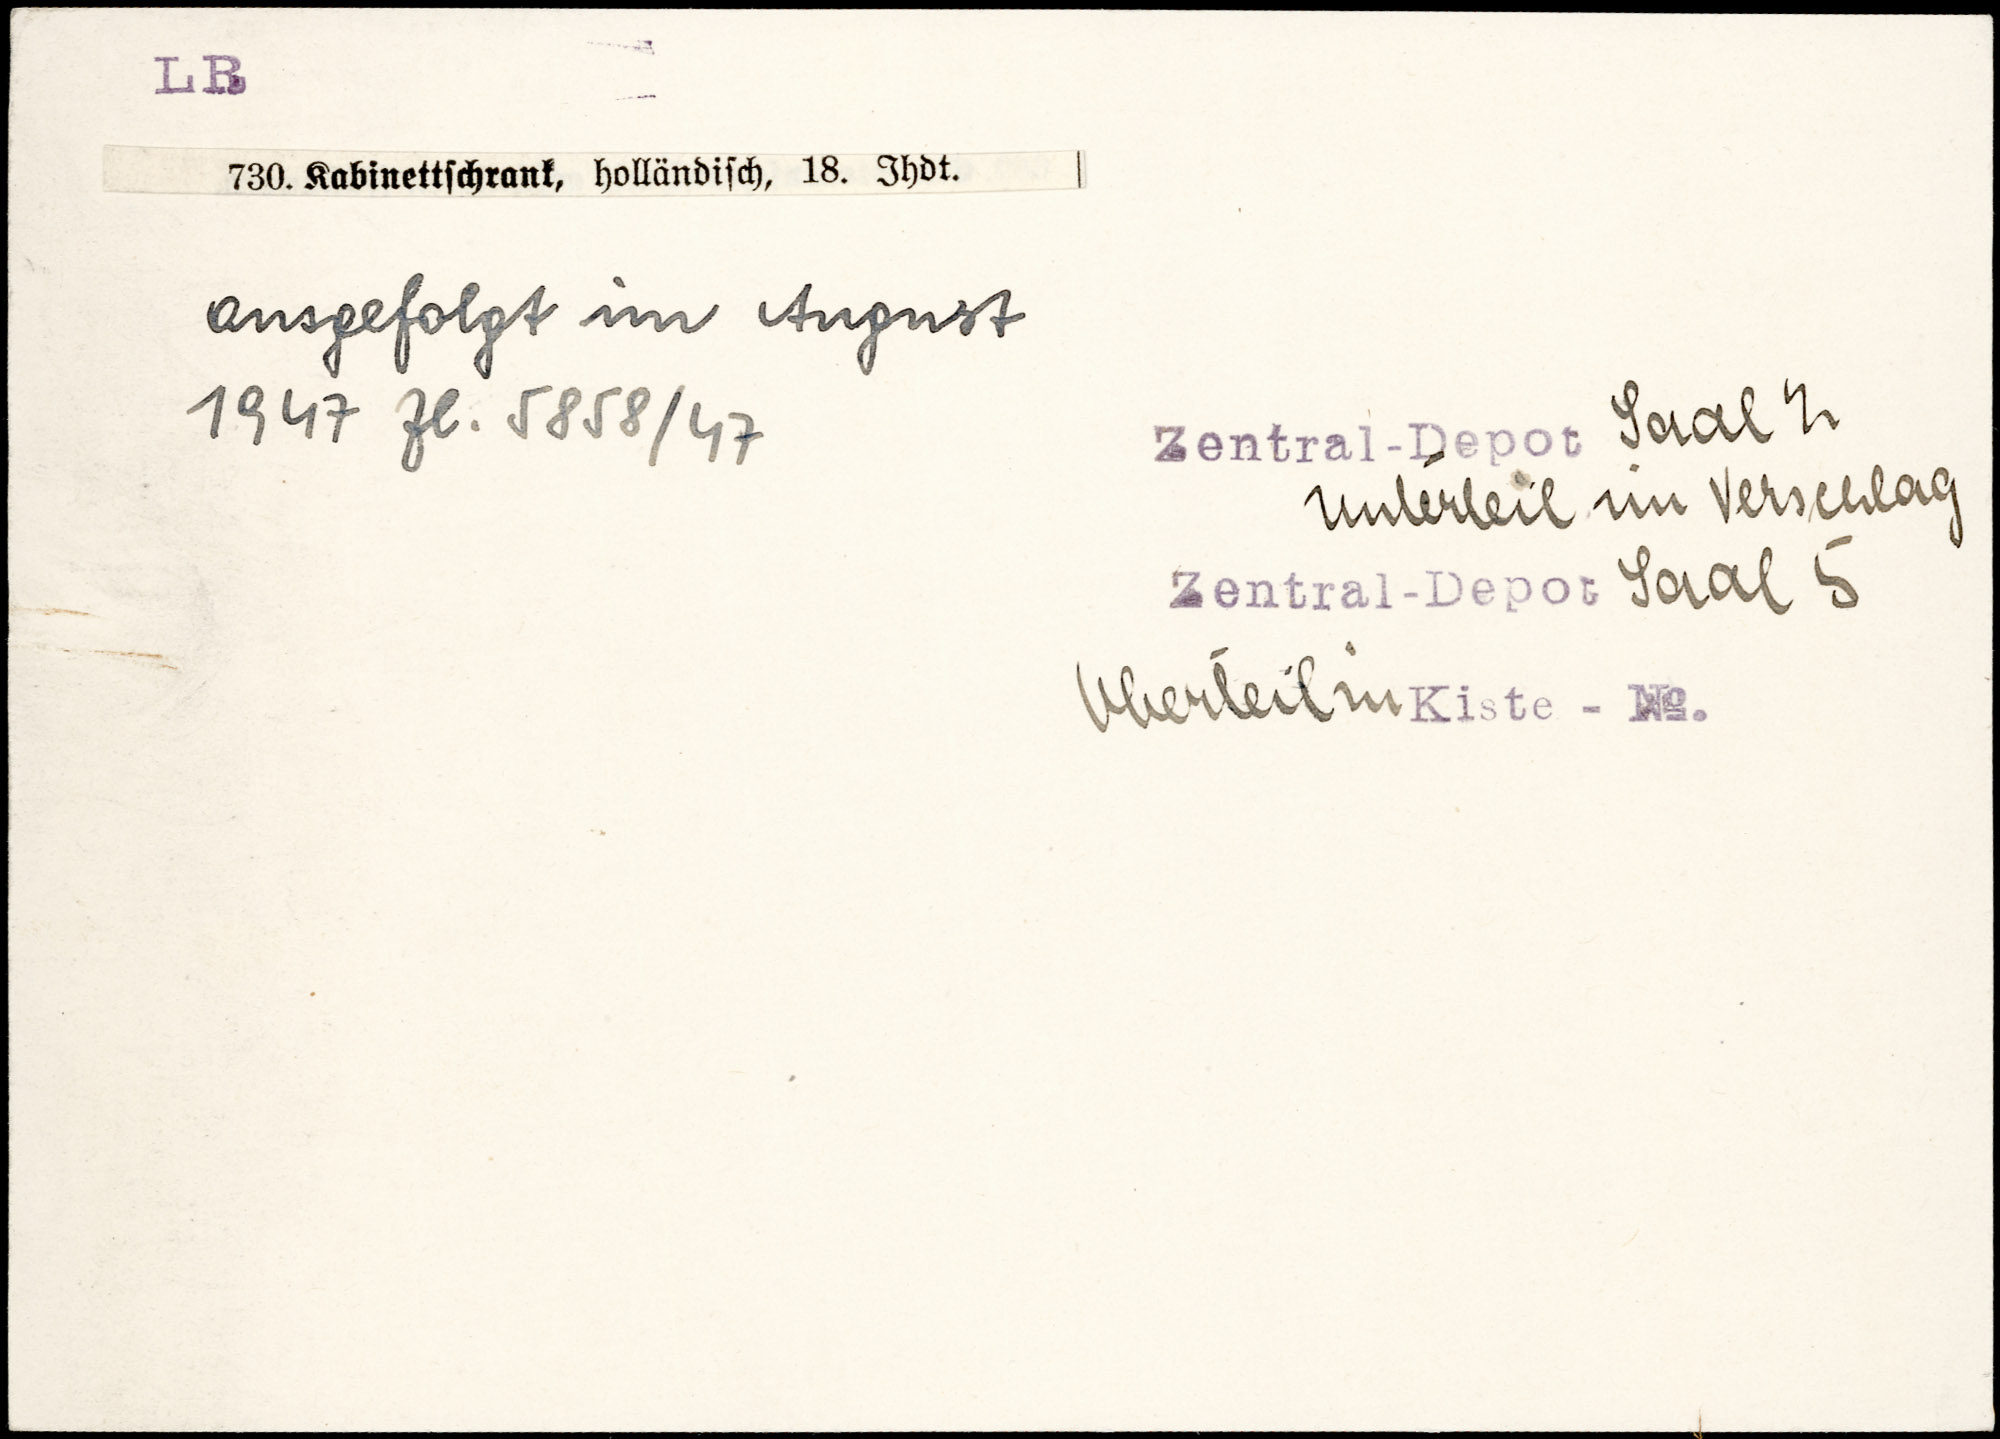 LR
730. Kabinettschrank, holländisch, 18. Jhdt.
ausgefolgt im August
1947 Zl. 5858/47
Zentral-Depot Saal
Unterteil im Verschlag
Zentral-Depot Saal 5
Oberteil in Kiste - No.